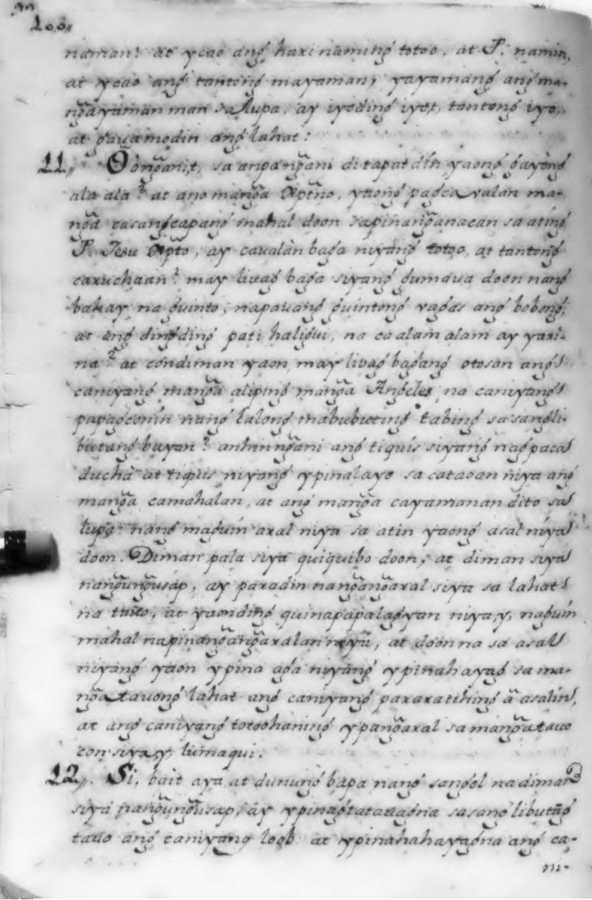 naman? at ycao ang hari naming totoo, at P. namin,
at ycao ang tantong mayaman; yayamang ang ma-
ngayaman man sa lupa, ay iyoding iyo, tantong iyo,
at gauamodin ang lahat?
11, Oonganit, sa anpangani ditapat din yaong gayong
ala ala? at ano manga Xptno, yaong pagcavalan ma-
nga casangcapang mahal doon sapinanganacan sa ating
P. Jesu Xpto, ay cavalan baga niyang totoo, at tantong
caruchaan? may livag baga siyang gumava doon nang
bahay na guinto, napavang guintong vagas ang bobong,
at ang dingding pati haligui, na ca alam alam ay yari-
na? at cundiman yaon may livag bagang otosan ang
caniyang manga aliping manga Angeles na caniyang
papagconin nang lalong mabubuting tabing sa sangli-
butang bayan? anhin ngani ang tiquis siyang nagpaca
ducha at tiquis niyang ypinalayo sa cataoan niya ang
manga camahalan, at ang manga cayamanan dito sa
lupa: nang maguin aral niya sa atin yaong asal niya
doon. Diman pala siya quiquibo doon, at diman siya
nangungusap, ay paradin nangangaral siya sa lahat
na tauo, at yaonding quinapapalagyan niya,y, naguin
mahal na pinangangaralan niya, at doon na sa asal
niyang yaon ypina aga niyang ypinahayag sa ma-
nga tavong lahat ang caniyang pararatihing aasalin,
at ang caniyang totoohaning ypangaral sa manga tauo
con siya,y, lumaqui.
12,, Si, bait aya at dunung bapa nang sangol na diman
siya nangungusap, ay ypinagtatatagna sa sang libutang
tauo ang caniyang loob at ypinahahayagna ang ca-
ni-